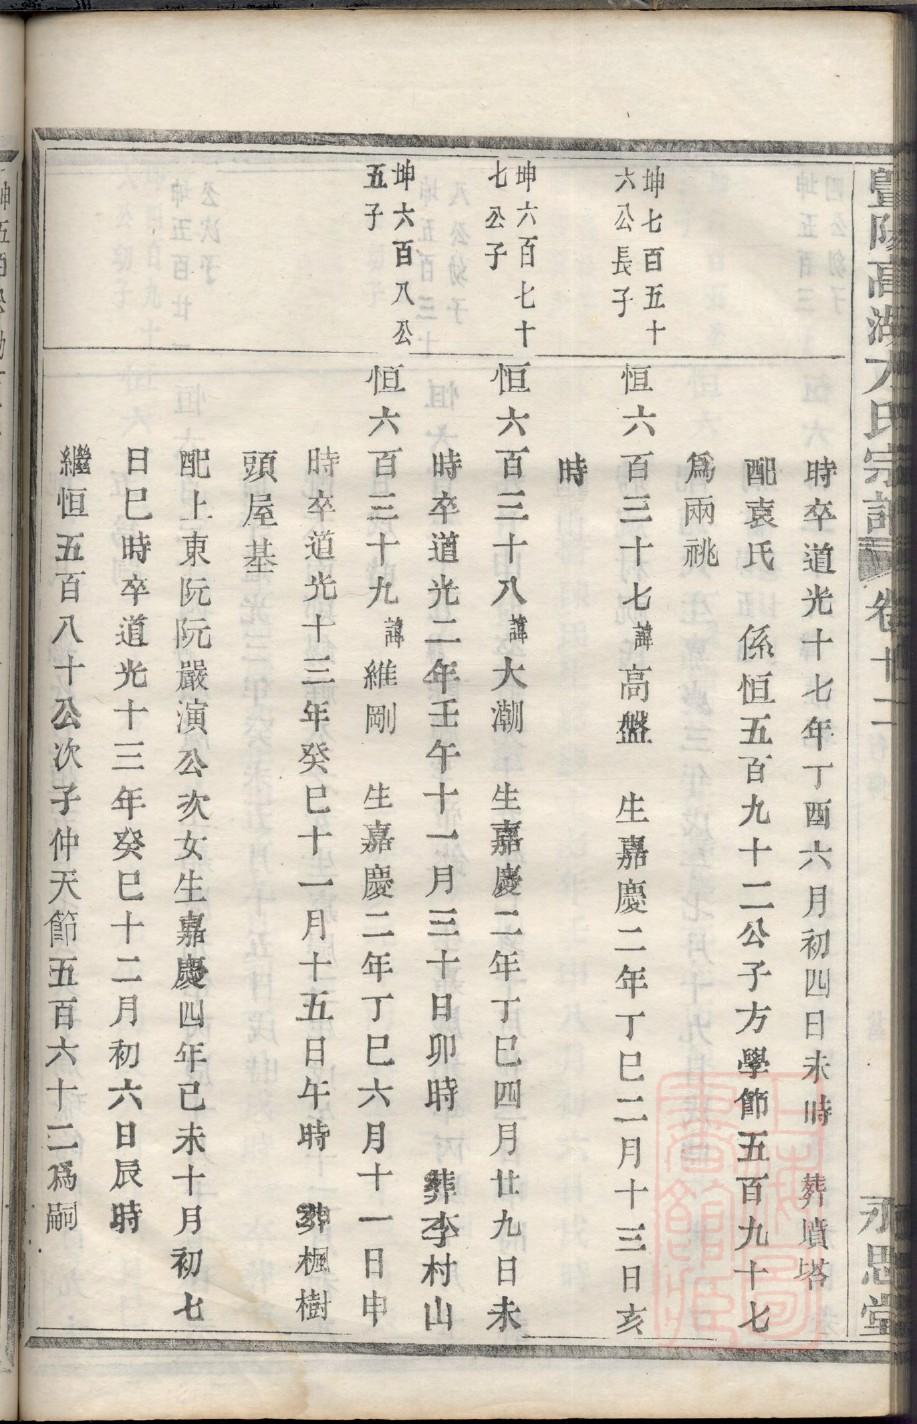 暨陽高湖方氏宗譜 卷廿二
永思堂
時卒道光十七年丁酉六月初四日未時 葬墳塔
配袁氏 係恒五百九十二公子方學節五百九十七
爲兩祧
坤七百五十
六公長子
恒六百三十七諱高盤 生嘉慶二年丁巳二月十三日亥
時
坤六百七十
七公子
恒六百三十八諱大潮 生嘉慶二年丁巳四月廿九日未
時卒道光二年壬午十一月三十日卯時 葬李村山
坤六百八公
五子
恒六百三十九諱維剛 生嘉慶二年丁巳六月十一日申
時卒道光十三年癸巳十一月十五日午時 葬楓樹
頭屋基
配上東阮阮嚴演公次女生嘉慶四年己未十月初七
日巳時卒道光十三年癸巳十二月初六日辰時
繼恒五百八十公次子仲天節五百六十二爲嗣